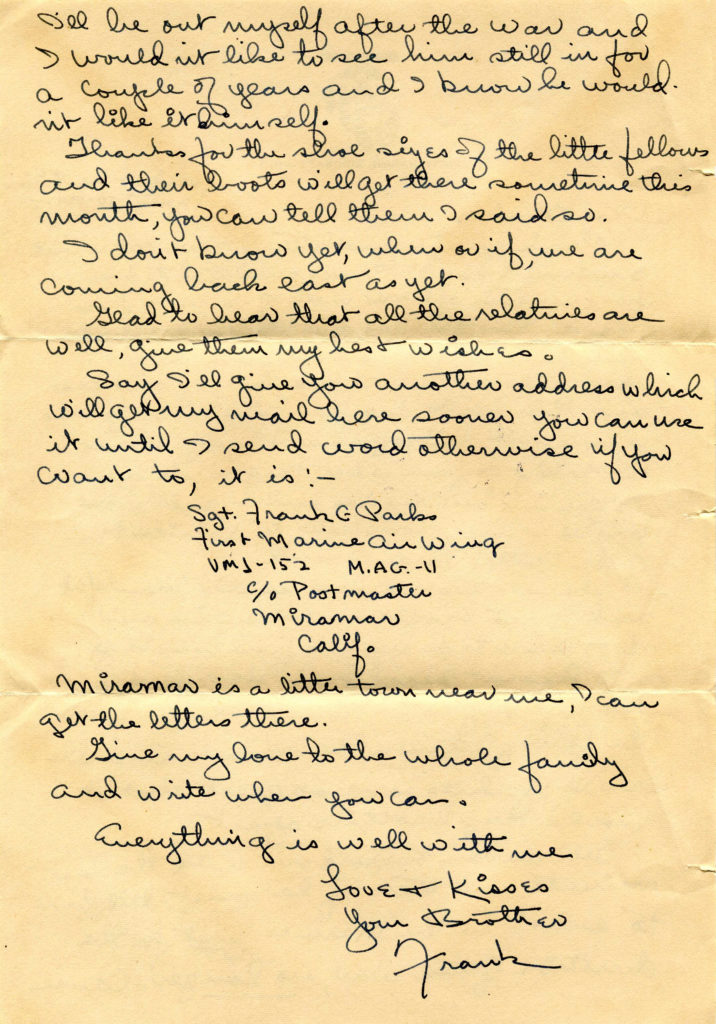 I'll be out myself after the war and
I would n't like to see him still in for
a couple of years and I know he would.
n't like it himself.
Thanks for the shoe sizes of the little fellows
and their boots will get there sometime this
month, you can tell them I said so.
I don't know yet, when or if, we are
coming back east as yet.
Glad to hear that all the relatives are
well, give them my best wishes.
Say I'll give you another address which
will get my mail here sooner you can use
it until I send word otherwise if you
want to, it is :-
Sgt. Frank G Parks
First Marine Air Wing
VMJ-152 M.AG.-11
c/o Postmaster
Miramar
Calif.
Miramar is a little town near me, I can
get the letters there.
Give my love to the whole family
and write when you can.
Everything is well with me
Love + Kisses
Your Brother
Frank